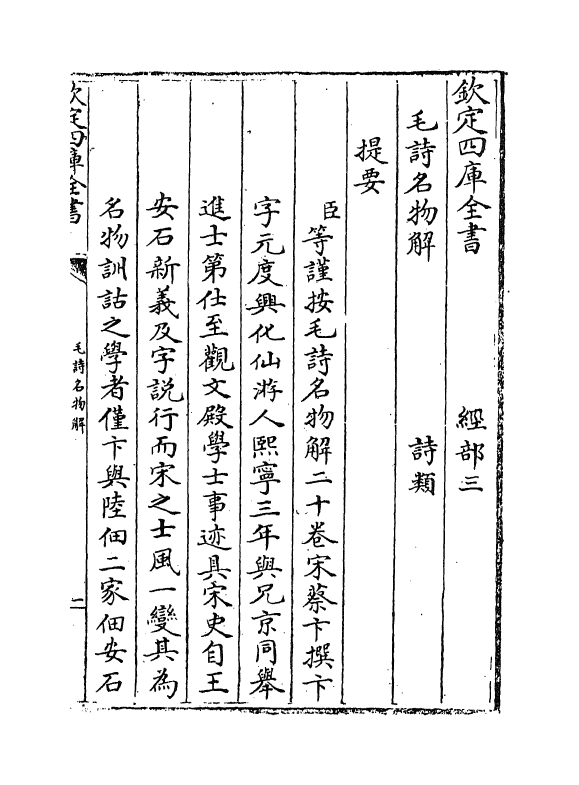 欽定四庫全書　經部三
毛詩名物解　詩類
提要
臣等謹按毛詩名物解二十卷宋蔡卞撰卞
字元度興化仙游人熙寧三年與兄京同舉
進士第仕至觀文殿學士事迹具宋史自王
安石新義及字説行而宋之士風一變其為
名物訓詁之學者僅卞與陸佃二家佃安石
欽定四庫全書
毛詩名物解
二